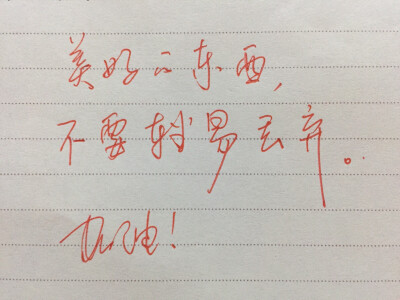 美好的东西，
不要轻易丢弃。
加油！